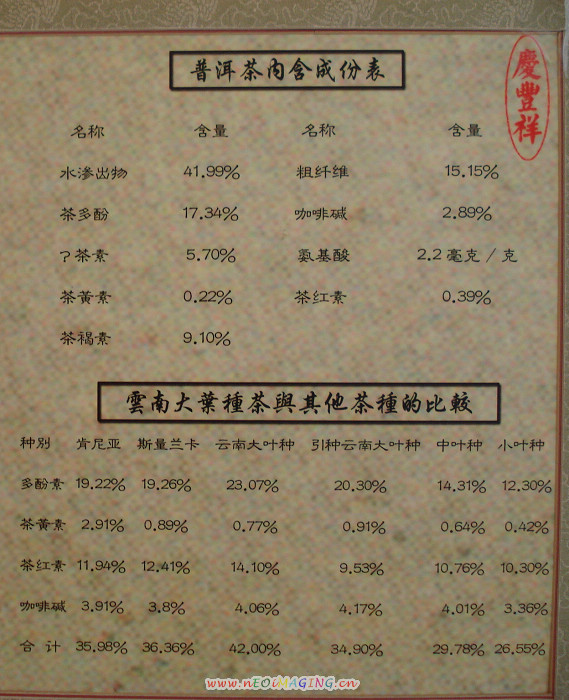 普洱茶内含成份表
慶豐祥
名称 含量 名称 含量
水渗出物 41.99% 粗纤维 15.15%
茶多酚 17.34% 咖啡碱 2.89%
?茶素 5.70% 氨基酸 2.2毫克/克
茶黄素 0.22% 茶红素 0.39%
茶褐素 9.10%
雲南大葉種茶與其他茶種的比較
种别 肯尼亚 斯量兰卡 云南大叶种 引种云南大叶种 中叶种 小叶种
多酚素 19.22% 19.26% 23.07% 20.30% 14.31% 12.30%
茶黄素 2.91% 0.89% 0.77% 0.91% 0.64% 0.42%
茶红素 11.94% 12.41% 14.10% 9.53% 10.76% 10.30%
咖啡碱 3.91% 3.8% 4.06% 4.17% 4.01% 3.36%
合计 35.98% 36.36% 42.00% 34.90% 29.78% 26.55%
www.nEOIMAGING.cn